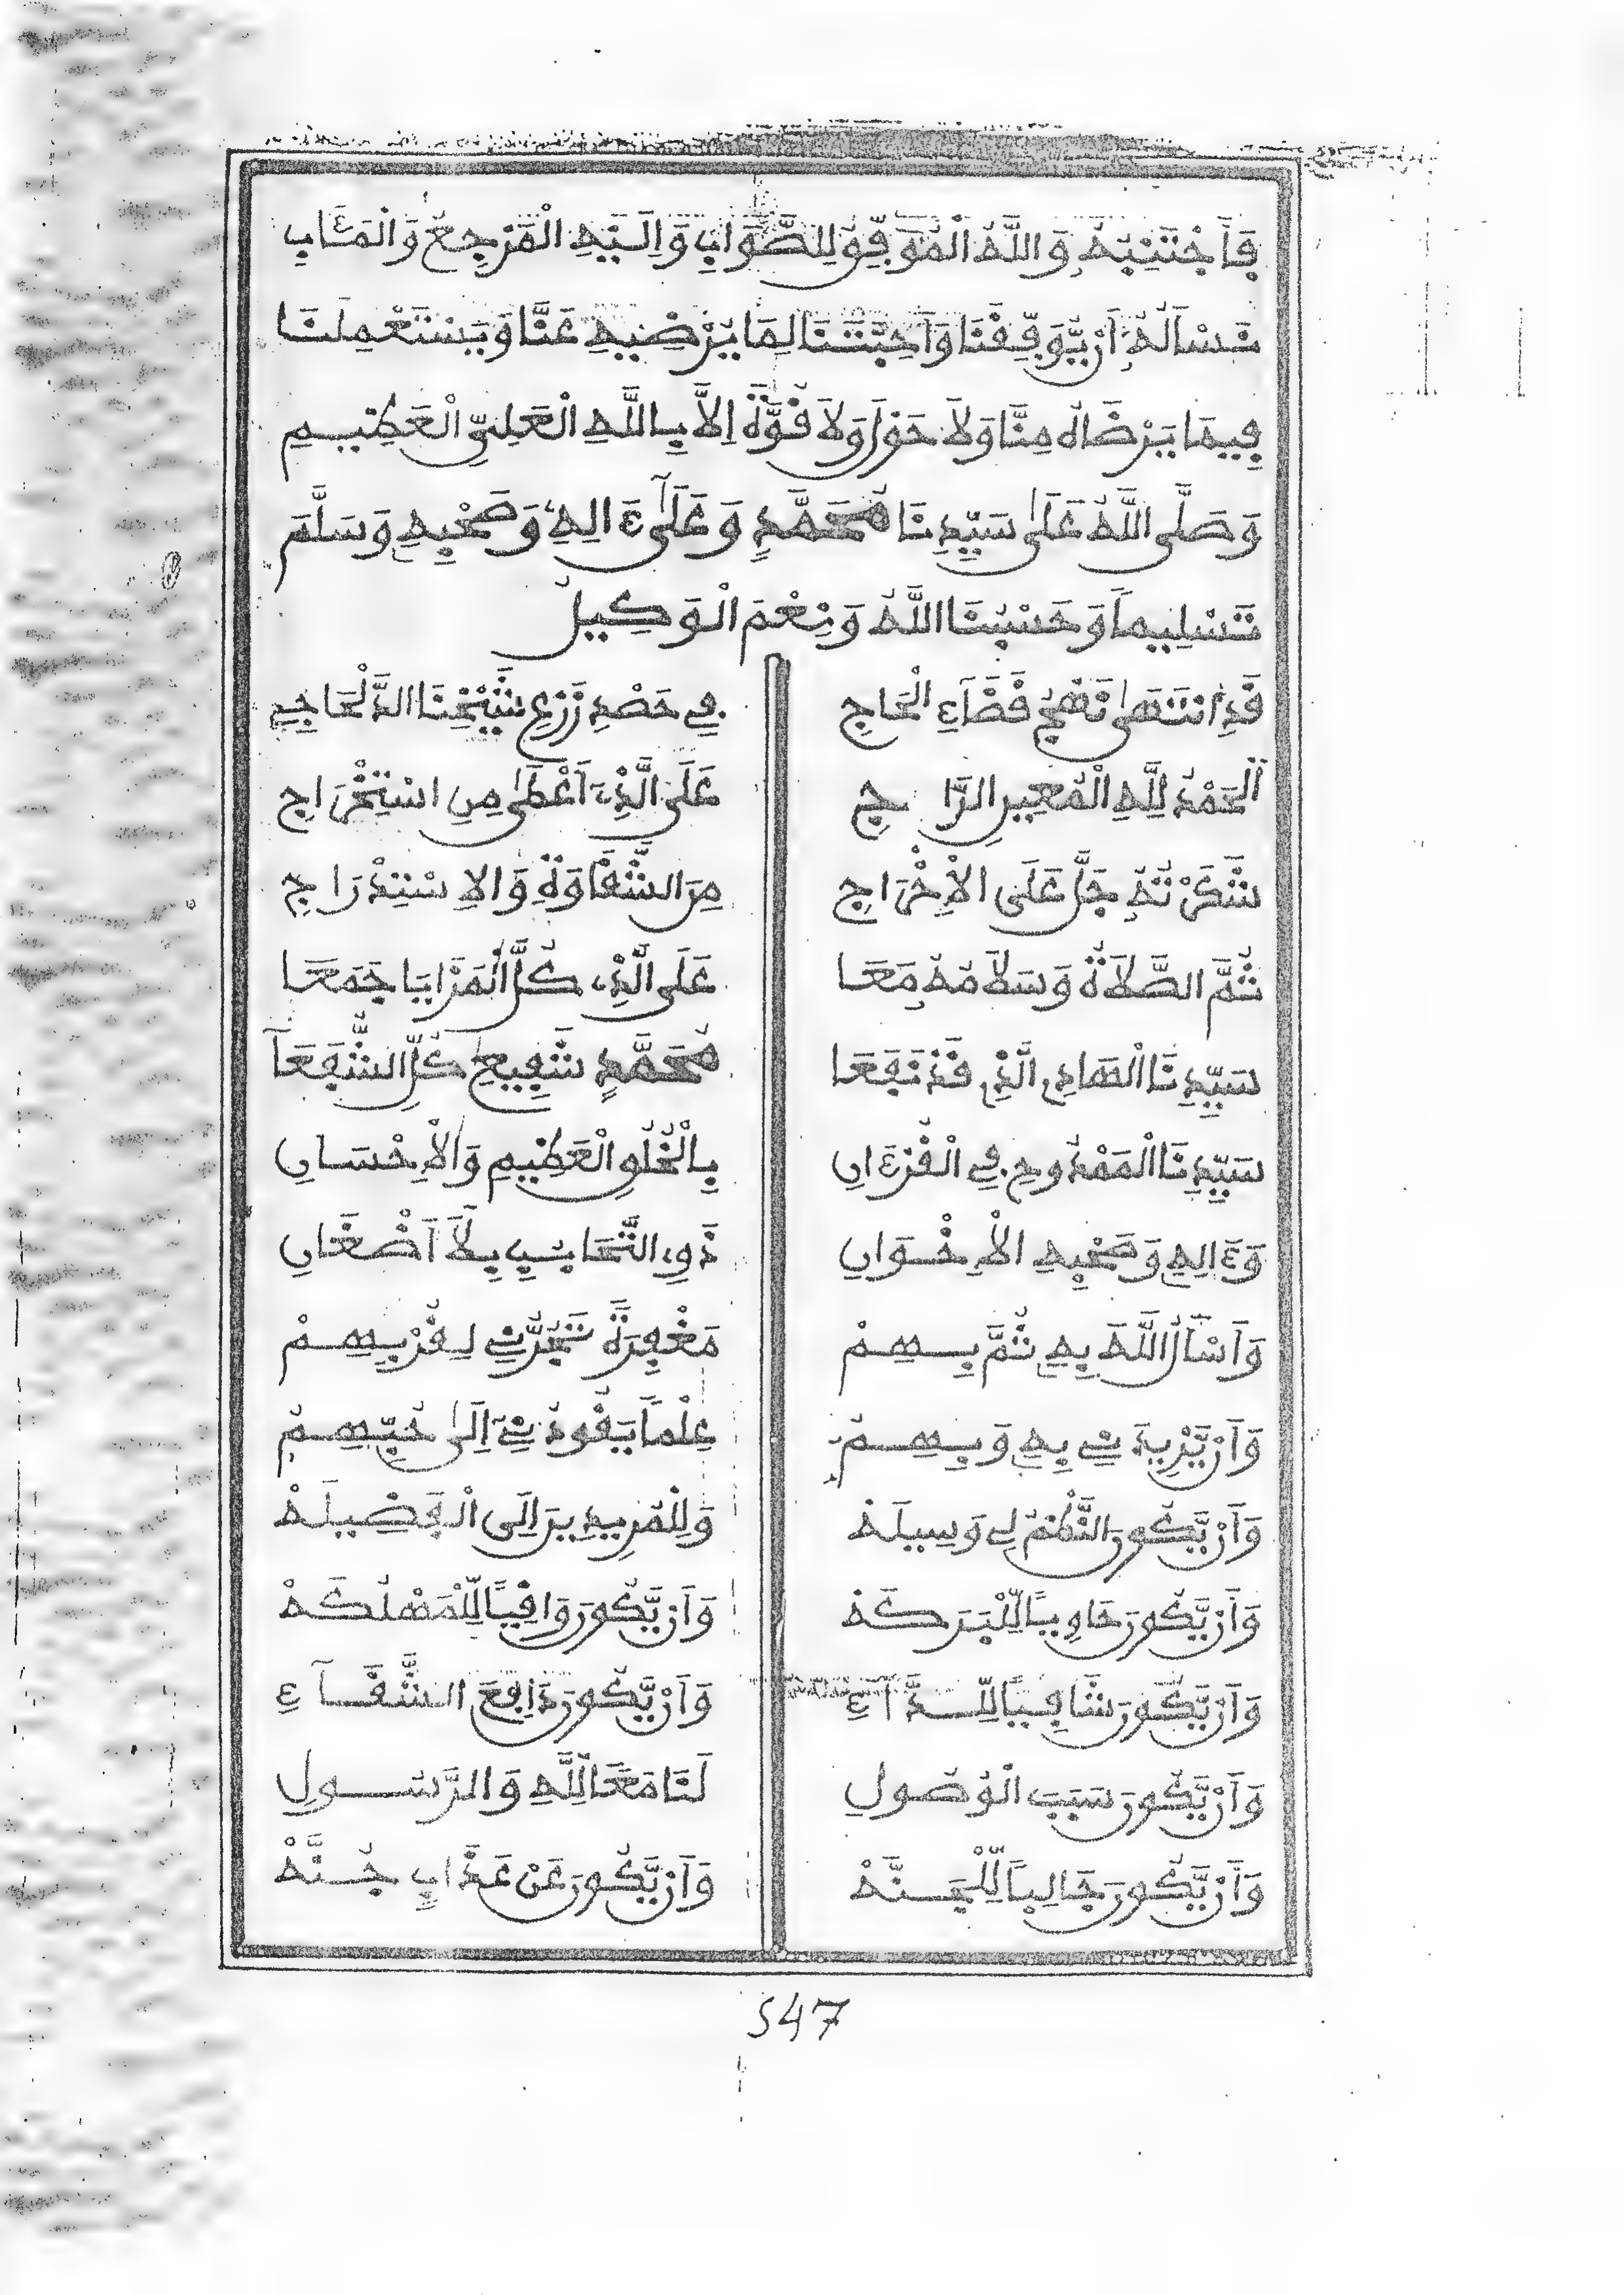 فَاَجْتَنِبُهُ وَاللَّهُ الْمُوَفِّقُ لِلصَّوَابِ وَإِلَيْهِ الْمَرْجِعُ وَالْمَئَابِ
نَسْأَلُهُ أَنْ يُّوَفِّقَنَا وَأَحِبَّتَنَا لِمَا يُرْضِيهِ عَنَّا وَيَسْتَعْمِلَنَا
فِيمَا يَرْضَاهُ مِنَّا وَلَا حَوْلَ وَلَا قُوَّةَ إِلَّا بِاللَّهِ الْعَلِيِّ الْعَظِيمِ
وَصَلَّى اللَّهُ عَلَى سَيِّدِنَا مُحَمَّدٍ وَعَلَى ءَالِهِ وَصَحْبِهِ وَسَلَّمَ
تَسْلِيماً وَحَسْبُنَا اللَّهُ وَنِعْمَ الْوَكِيلُ
قَدِ انْتَهَى نَهْجُ قَضَاءِ الْحَاجِ فِي حَصْدِ زَرْعِ شَيْخِنَا الدَّلْحَاجِ
اَلْحَمْدُ لِلَّهِ الْمُعِيرِ الرَّاجِ عَلَى الَّذِي أَعْطَى مِنِ اسْتِخْرَاجِ
شَكَرْتُهُ جَلَّ عَلَى الْإِخْرَاجِ مِنَ الشَّقَاوَةِ وَالِاسْتِدْرَاجِ
ثُمَّ الصَّلَاةُ وَسَلَامُهُ مَعَا عَلَى الَّذِي كُلَّ الْمَزَايَا جَمَعَا
سَيِّدِنَا الْهَادِي الَّذِي قَدْ نَفَعَا مُحَمَّدٍ شَفِيعِ كُلِّ الشُّفَعَا
سَيِّدِنَا الْمَمْدُوحِ فِي الْقُرْءَانِ بِالْخُلُقِ الْعَظِيمِ وَالْإِحْسَانِ
وَءَالِهِ وَصَحْبِهِ الْإِخْوَانِ ذَوِي التَّحَابُبِ بِلَا أَضْغَانِ
وَأَسْأَلُ اللَّهَ بِهِ ثُمَّ بِهِمْ مَغْفِرَةً تَجُرُّنِي لِقُرْبِهِمْ
وَأَنْ يَّزِيدَنِي بِهِ وَبِهِمُ عِلْماً يَقُودُنِي إِلَى حُبِّهِمُ
وَأَنْ يَّكُونَ النَّظْمُ لِي وَسِيلَهْ وَلِلْمُرِيدِينَ إِلَى الْفَضِيلَهْ
وَأَنْ يَّكُونَ حَاوِياً لِّلْبَرَكَهْ وَأَنْ يَّكُونَ وَاقِياً لِّلْمَهْلُكَهْ
وَأَنْ يَّكُونَ شَافِياً لِّلدَّاءِ وَأَنْ يَّكُونَ دَافِعَ الشَّقَاءِ
وَأَنْ يَّكُونَ سَبَبَ الْوُصُولِ لَنَا مَعاً لِلَّهِ وَالرَّسُولِ
وَأَنْ يَّكُونَ جَالِباً لِّلْجَنَّهْ وَأَنْ يَّكُونَ عَنْ عَذَابٍ جُنَّهْ
547